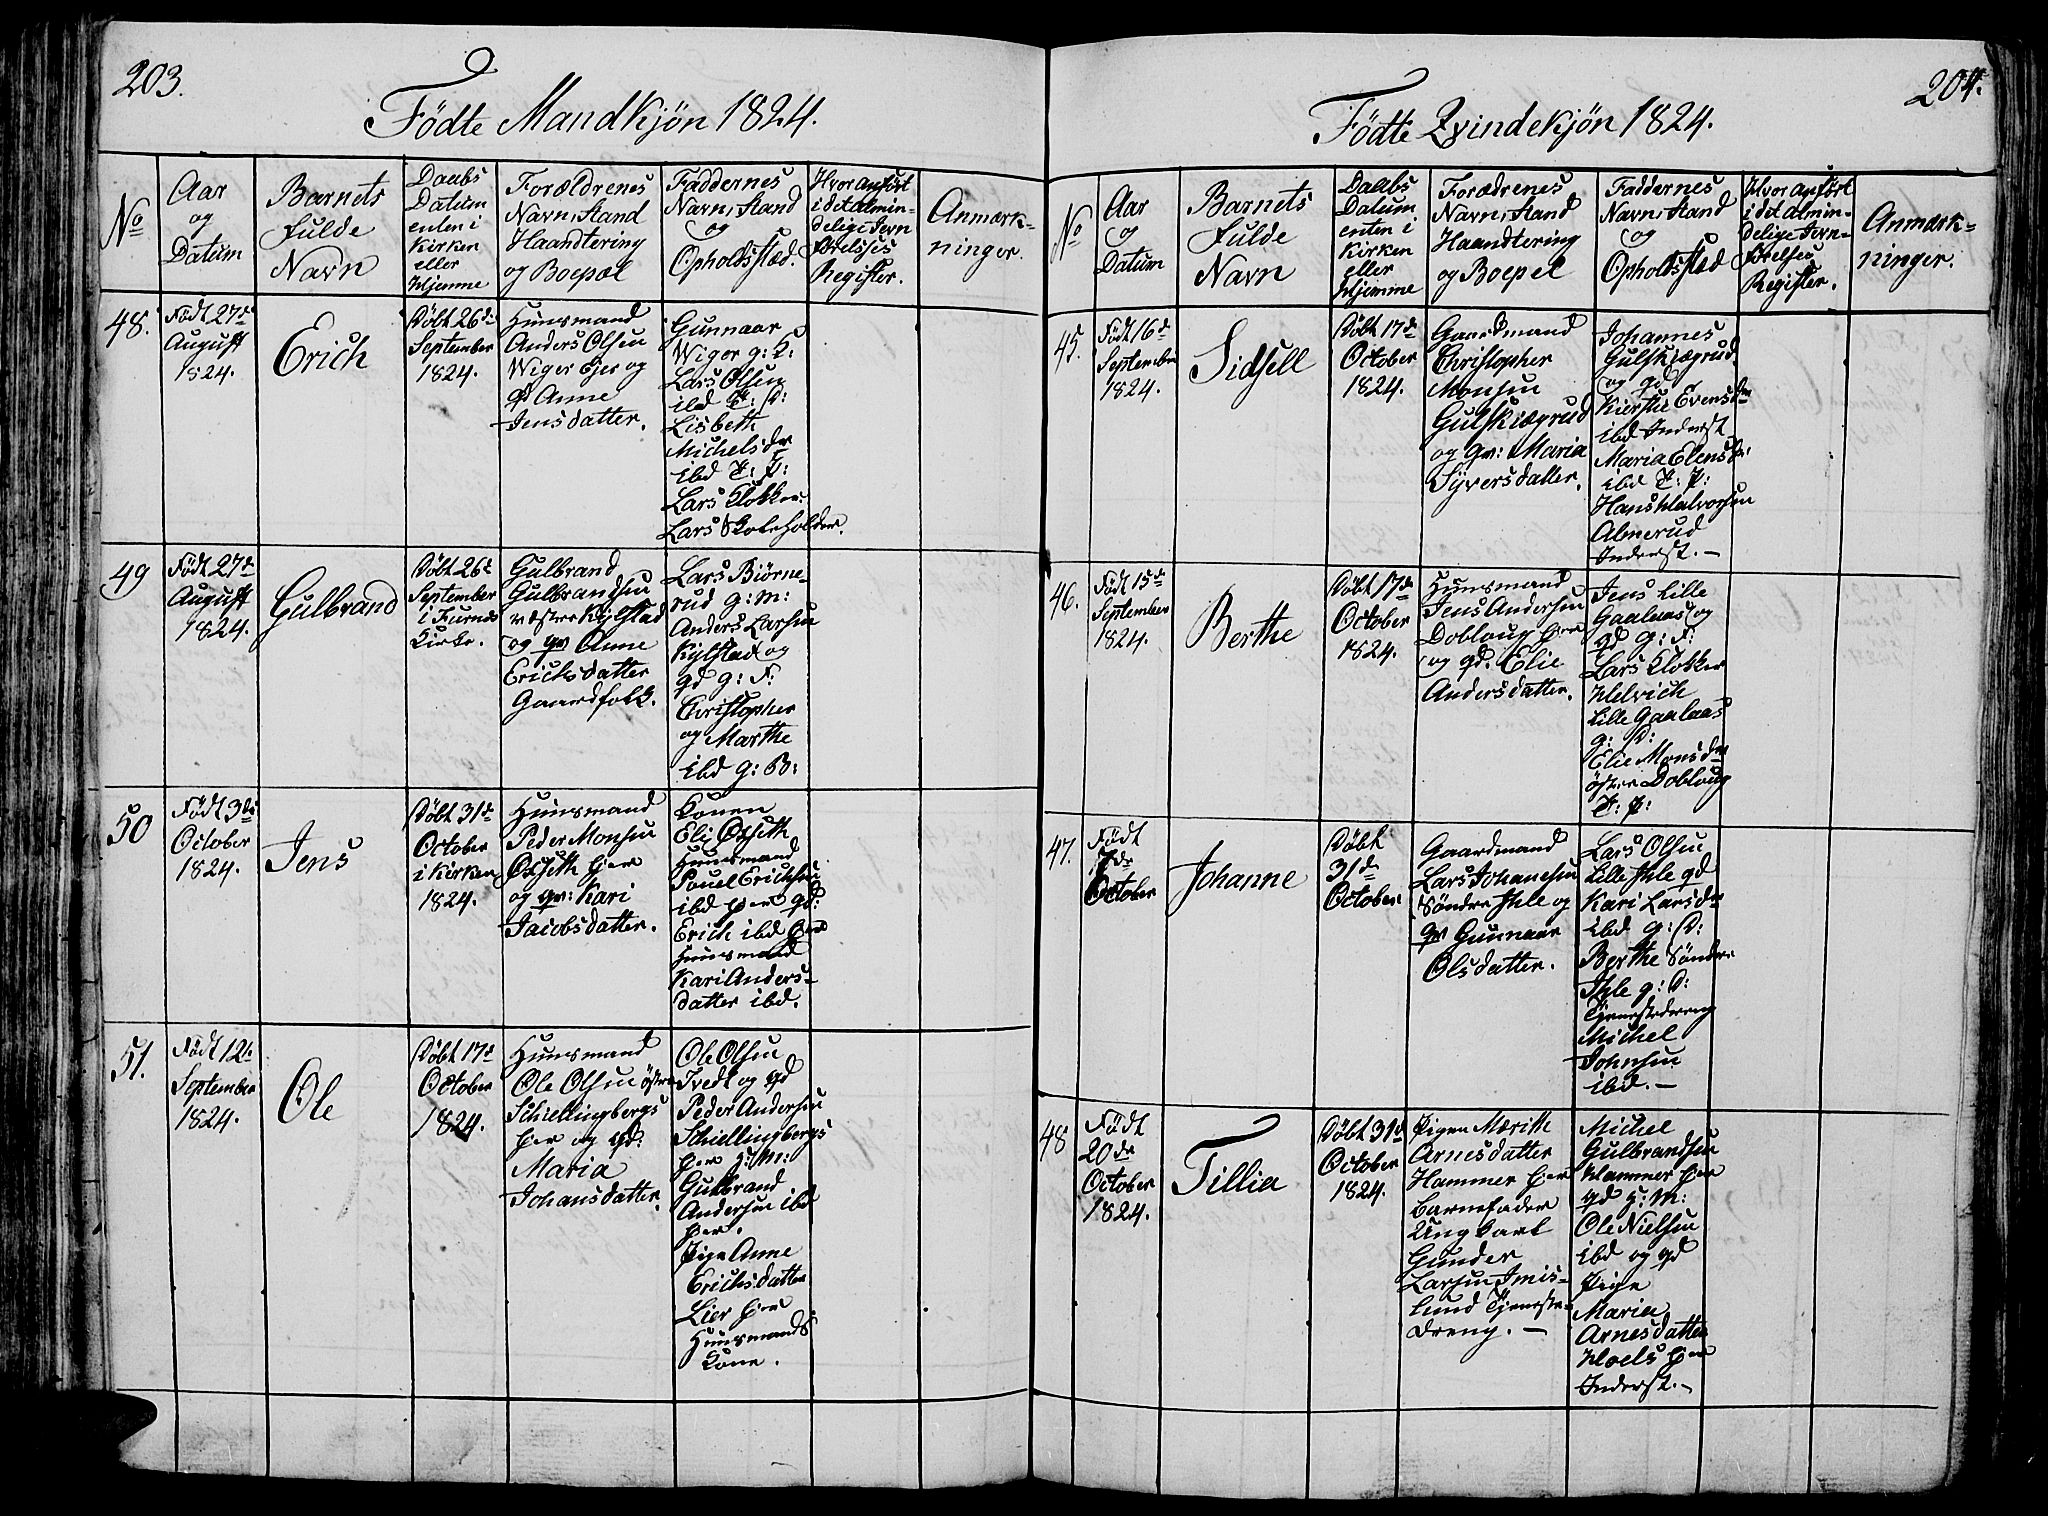 203.
Fødte Mandkjön 1824.
No
Aar
og
Datum
Barnets
fulde
Navn
Daabs
Datum
enten i
Kirken
eller
Hjemme
Forældrenes
Navn, Stand
Haandtering
og Boepæl
Faddernes
Navn, Stand
og
Opholdsstæd.
Hvor anført
i det almin-
delige Jevn-
førelses
Register.
Anmærk-
ninger.
48.
Født 27de
August
1824.
Erich
Døbt 26de
September
1824.
Huusmand
Anders Olsen
Wiger Ejer og
qv Anne
Jensdatter.
Gunnaar
Wiger g: K:
Lars Olsen
ibd T: D:
Lisbeth
Michelsdr
ibd T: P:
Lars Klokker
Lars Skoleholder.
49
Født 27de
August
1824.
Gulbrand
Døbt 26d
September
i Furnes
Kirke.
Gulbrand
Gulbrandsen
væstre Kylstad
og qv Anne
Erichsdatter
Gaardfolk.
Lars Biørne-
rud g: M:
Anders Larsen
Kylstad og
qd g: F:
Christopher
og Marthe
ibd g: B:
50
Født 3de
October
1824.
Jens
Døbt 31d
October
i Kirken
1824.
Huusmand
Peder Monsen
Oxseth Ejer
og qv: Kari
Jacobsdatter.
Konen
Eli Oxseth
Huusmand
Pouel Erichsen
ibd Ejer qd:
Erich ibd Ejer
Huusmand
Kari Anders-
datter ibd.
51.
Født 12te
September
1824.
Ole
Døbt 17d
October
1824.
Huusmand
Ole Olsen østre
Schiellingbergs
Ejer og qd:
Maria
Johansdatter.
Ole Olsen
Tvedt og qd
Peder Andersen
Schiellingbergs
Ejer H: M:
Gulbrand
Andersen ibd
Ejer.
Pige Anne
Erichsdatter
Lier Ejer
Huusmands
Kone.
204.
Fødte Qvindekjön 1824.
No
Aar
og
Datum
Barnets
fulde
Navn
Daabs
Datum
enten i
Kirken
eller
Hjemme
Forædrenes
Navn, Stand
Haandtering
og Boepel
Faddernes
Navn, Stand
og
Opholdsstæd
Hvor anført
i det almin-
delige Jevn-
førelses
Register.
Anmærk-
ninger.
45.
Født 16d
September
1824.
Sidsell
Døbt 17de
October
1824.
Gaardmand
Christopher
Monsen
Gulskiægrud
og qv: Maria
Syversdatter.
Johannes
Gulskiægrud
og qd
Kirstie Evensdr
ibd Inderst
Maria Elensdr:
ibd T: P:
Hans Halvorsen
Almerud
Inderst. —
46.
Født 15de
September
1824.
Berthe
Døbt 17de
October
1824.
Huusmand
Jens Andersen
Dobloug Ejer
og qd. Elie
Andersdatter.
Jens Lille
Gaalaas og
qd g: F:
Lars Klokker
Helvich
Lille Gaalaas
g: D:
Elie Monsdr
østre Dobloug
T: P:
47.
Født
7de
October
Johanne
Døbt
31de
October
Gaardmand
Lars Johanesen
Søndre Ihle og
qv Gunnaar
Olsdatter.
Lars Olsen
Lille Ihle qd
Kari Larsdr
ibd g: D:
Berthe Søndre
Ihle g: D:
Tjenestedreng
Michel
Johnsen
ibd. —
48
Født
20de
October
1824.
Tillia
Døbt 31de
October
1824.
Pigen Mærith
Arnesdatter
Hammer Ejer
Barnefader
Ung Karl
Gunder
Larsen Imis-
lund Tjeneste-
dreng. —
Michel
Gulbrandsen
Hammer Ejer
qd H: M:
Ole Nielsen
ibd og qd
Pige
Maria
Arnesdatter
Hoels Ejer
Inderst. —